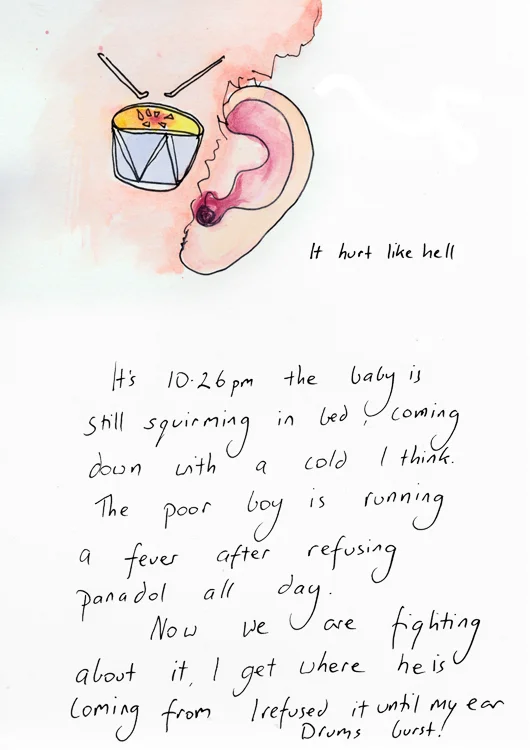 It hurt like hell
It's 10.26pm the baby is
still squirming in bed, coming
down with a cold I think.
The poor boy is running
a fever after refusing
panadol all day.
Now we are fighting
about it, I get where he is
coming from I refused it until my ear
Drums burst!